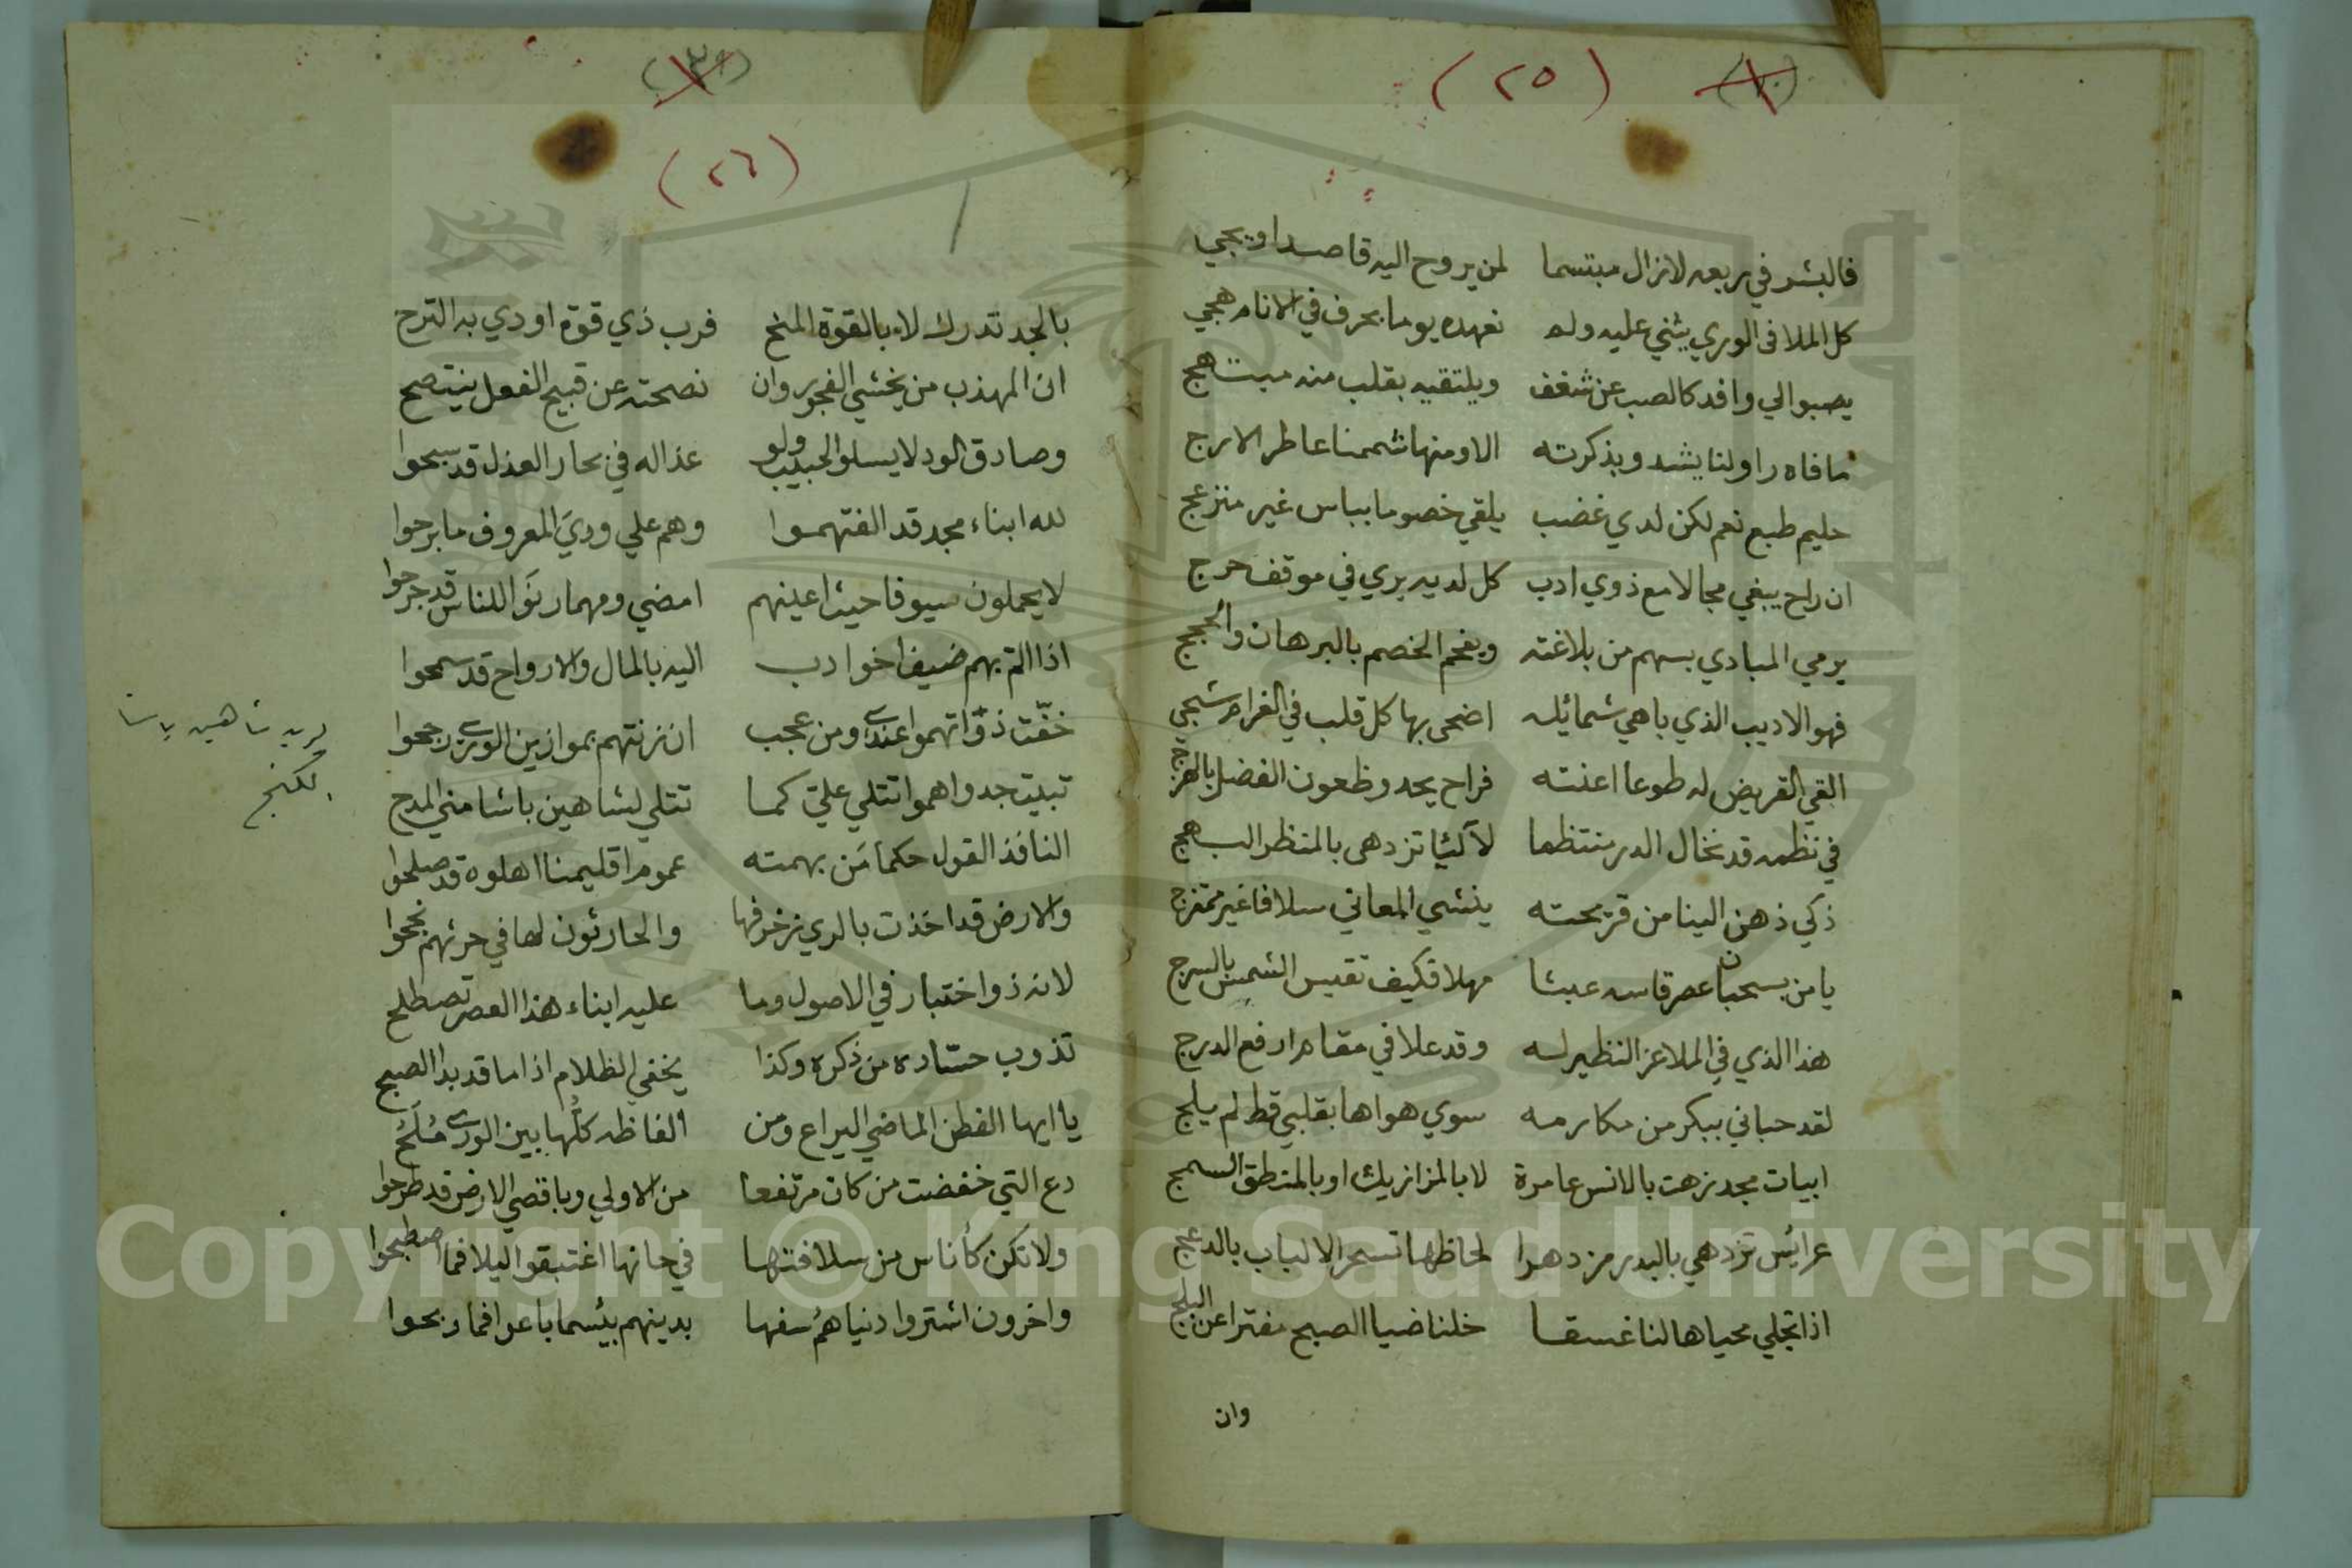 (٢٥)
فالبشر في ربعه لازال مبتسما لمن يروح اليه قاصدا ويجي
كل الملا فى الوري يثني عليه ولم نعهده يوما بحرف في الانام هجي
يصبوا الي وافد كالصب عن شغف ويلتقيه بقلب منه مبتهج
ما فاه راو لنا يشدو بذكرته الا ومنها شممنا عاطر الارج
حليم طبع نعم لكن لدي غضب يلقي خصوما بباس غير منزعج
ان راح يبغي مجالا مع ذوي ادب كل لديه يري في موقف حرج
يرمي المبادي بسهم من بلاغته ويفحم الخصم بالبرهان والحجج
فهو الاديب الذي باهي شمائله اضحى بها كل قلب في الغرام شجي
القي القريض له طوعا اعنته فراح يحدو ظعون الفضل بالهزج
في نظمه قد نخال الدر منتظما لآلئيا تزدهى بالمنظر البهج
ذكي ذهن الينا من قريحته ينشي المعاني سلافا غير ممتزج
يا من بسحبان عصر قاسه عبثا مهلا فكيف تقيس الشمس بالسرج
هذا الذي في الملا عز النظير له وقد علا في مقام ارفع الدرج
لقد حباني ببكر من مكارمه سوي هواها بقلبي قط لم يلج
ابيات مجد زهت بالانس عامرة لا بالمزازيك او بالمنطق السمج
عرايس تزدهي بالبدر مزدهرا لحاظها تسحر الالباب بالدعج
اذا تجلي محياها لنا غسقا خلنا ضيا الصبح مفترا عن البلج
وان
(٢٦)
بالجد تدرك لا بالقوة المنح فرب ذي قوة اودي به الترح
ان المهذب من يخشي الفجور وان نصحته عن قبيح الفعل ينتصح
وصادق الود لا يسلو الحبيب ولو عذاله في بحار العذل قد سبحوا
لله ابناء مجد قد الفتهموا وهم علي وديَ المعروف ما برحوا
لا يحملون سيوفا حيث اعينهم امضي ومهما رنَوا للناس قد جرحوا
اذا التم بهم ضيف اخوا دب اليه بالمال والارواح قد سمحوا
خفّت ذوّاتهموا عندي ومن عجب ان زنتهم بموازين الورى رجحوا
تبيت جدواهموا تتلي عليّ كما تتلي لشاهين باشا مني المدح
النافذ القول حكما مَن بهمته عموم اقليمنا اهلوه قد صلحوا
والارض قد اخذت بالري زخرفها والحارثون لها في حرثهم نجحوا
لانه ذو اختبار في الاصول وما عليه ابناء هذا العصر تصطلح
تذوب حسّاده من ذكره وكذا يخفي الظلام اذا ما قد بدا الصبح
يا ايها الفطن الماضي اليراع ومن الفاظه كلُّها بين الورى مُلَحُ
دع التي خفضت من كان مرتفعا من الاولي وباقصي الارض قد طرحوا
ولا تكن كأناس من سلافتها في حانها اغتبقوا ليلا فما اصطبحوا
واخرون اشتروا دنياهمُ سفها بدينهم بئسما باعوا فما ربحوا
شاهين باشا
كنج
Copyright © King Saud University